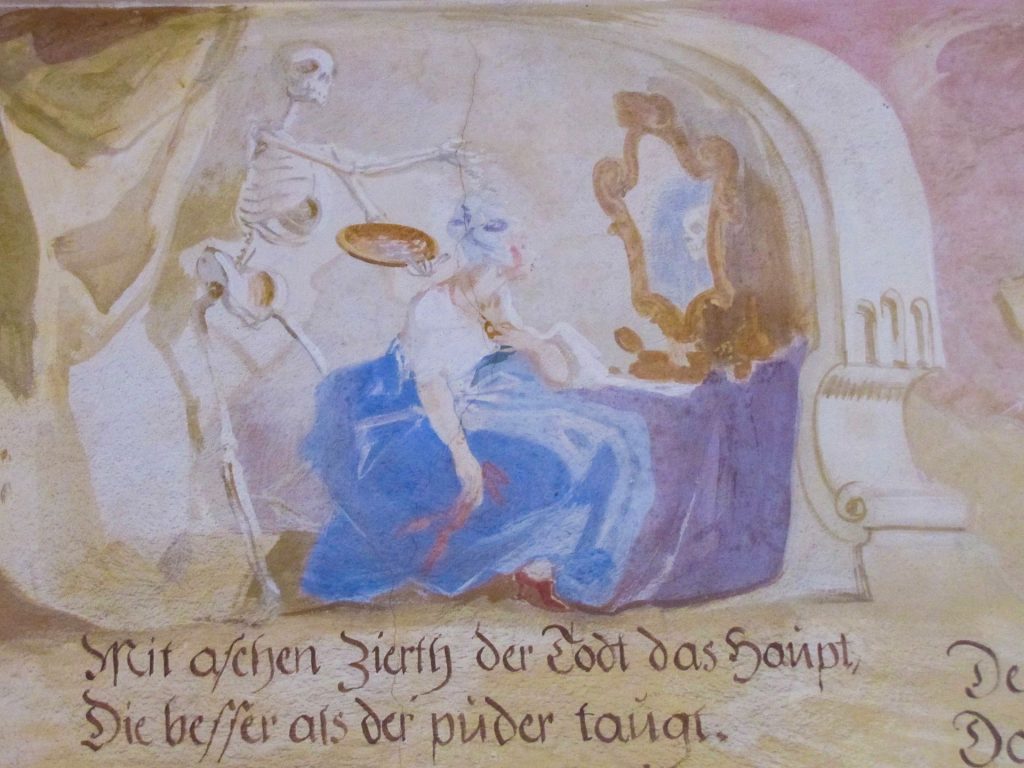 Mit aschen Zierth der Todt das Haupt,
De
Die besser als der puder taugt.
Da